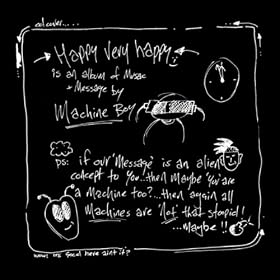 cd cover....
Happy very happy
is an album of Music
+ Message by
Machine Boy
ps: if our 'Message' is an alien
concept to you!..then Maybe you are
a Machine too?...then again all
Machines are 'Not' that stoopid!
...Maybe!!